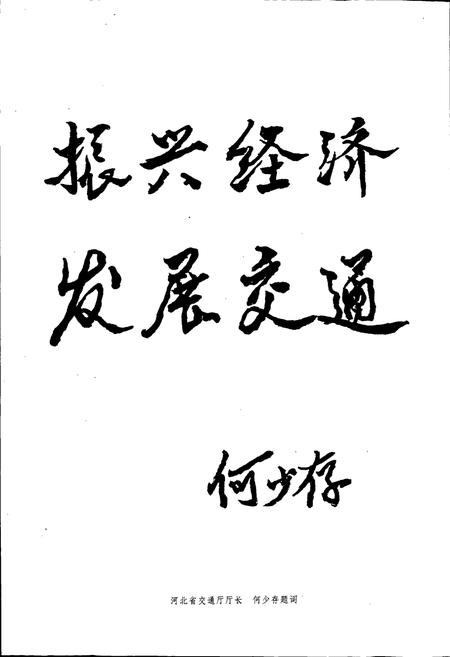 振兴经济
发展交通
何少存
河北省交通厅厅长 何少存题词